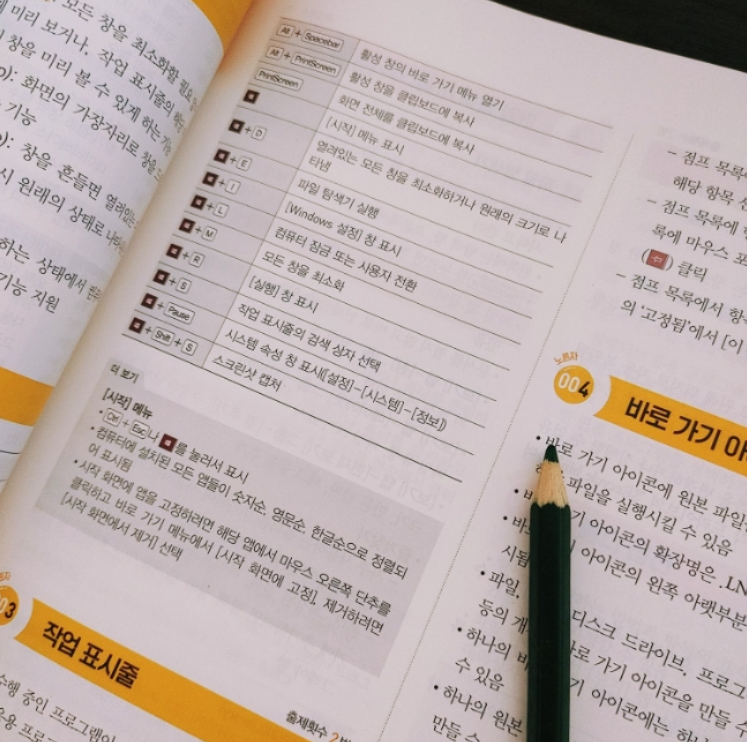 모든 창을 최소화할 필요
미리 보거나, 작업 표시줄의
창을 미리 볼 수 있게 하는
화면의 가장자리로 창을
기능
창을 흔들면
시 원래의 상태로
하는 상태에서
기능 지원
Alt + Spacebar 활성 창의 바로 가기 메뉴 열기
Alt + PrintScreen 활성 창을 클립보드에 복사
PrintScreen 화면 전체를 클립보드에 복사
[시작] 메뉴 표시
+ D 열려있는 모든 창을 최소화하거나 원래의 크기로 나
타냄
+ E 파일 탐색기 실행
+ I [Windows 설정] 창 표시
+ L 컴퓨터 잠금 또는 사용자 전환
+ M 모든 창을 최소화
+ R [실행] 창 표시
+ S 작업 표시줄의 검색 상자 선택
+ Pause 시스템 속성 창 표시([설정]-[시스템]-[정보])
+ Shift + S 스크린샷 캡처
더 보기
[시작] 메뉴
• Ctrl + Esc나 를 눌러서 표시
• 컴퓨터에 설치된 모든 앱들이 숫자순, 영문순, 한글순으로 정렬되
어 표시됨
• 시작 화면에 앱을 고정하려면 해당 앱에서 마우스 오른쪽 단추를
클릭하고 바로 가기 메뉴에서 [시작 화면에 고정], 제거하려면
[시작 화면에서 제거] 선택
작업 표시줄
출제횟수 2
수행 중인 프로그램이
- 점프 목록
해당 항목
- 점프 목록에
록에 마우스
( ) 클릭
- 점프 목록에서
의 '고정됨'에서 [이
노른자
004 바로 가기
• 바로 가기 아이콘에 원본
파일을 실행시킬 수 있음
가기 아이콘의 확장명은 .LN
아이콘의 왼쪽 아랫부분
• 파일, 디스크 드라이브,
등의 바로 가기 아이콘을
• 하나의 가기 아이콘에는
수 있음
• 하나의 원본
만들 수